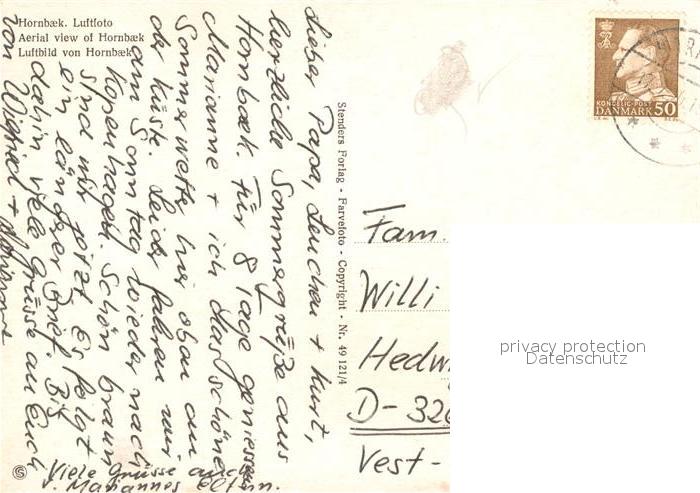 Hornbæk. Luftfoto
Aerial view of Hornbæk
Luftbild von Hornbæk
Lieber Papa, Lenchen + Kurt,
herzliche Sommergrüße aus
Hornbæk. Für 8 Tage geniessen
Marianne + ich das schöne
Sommerwetter hier oben an
der Küste. Leider fahren wir
am Sonntag wieder nach
Kopenhagen. Schön braun
sind wir jetzt. Es folgt
ein längerer Brief. Bis
dahin viele Grüsse an Euch
von Wilfried + Marianne
Viele Grüsse auch
v. Mariannes Eltern.
Stenders Forlag - Farvefoto - Copyright - Nr. 49 121/4
KONGELIG POST
DANMARK 50
Fam.
Willi
Hedw
D-326
Vest-
privacy protection
Datenschutz